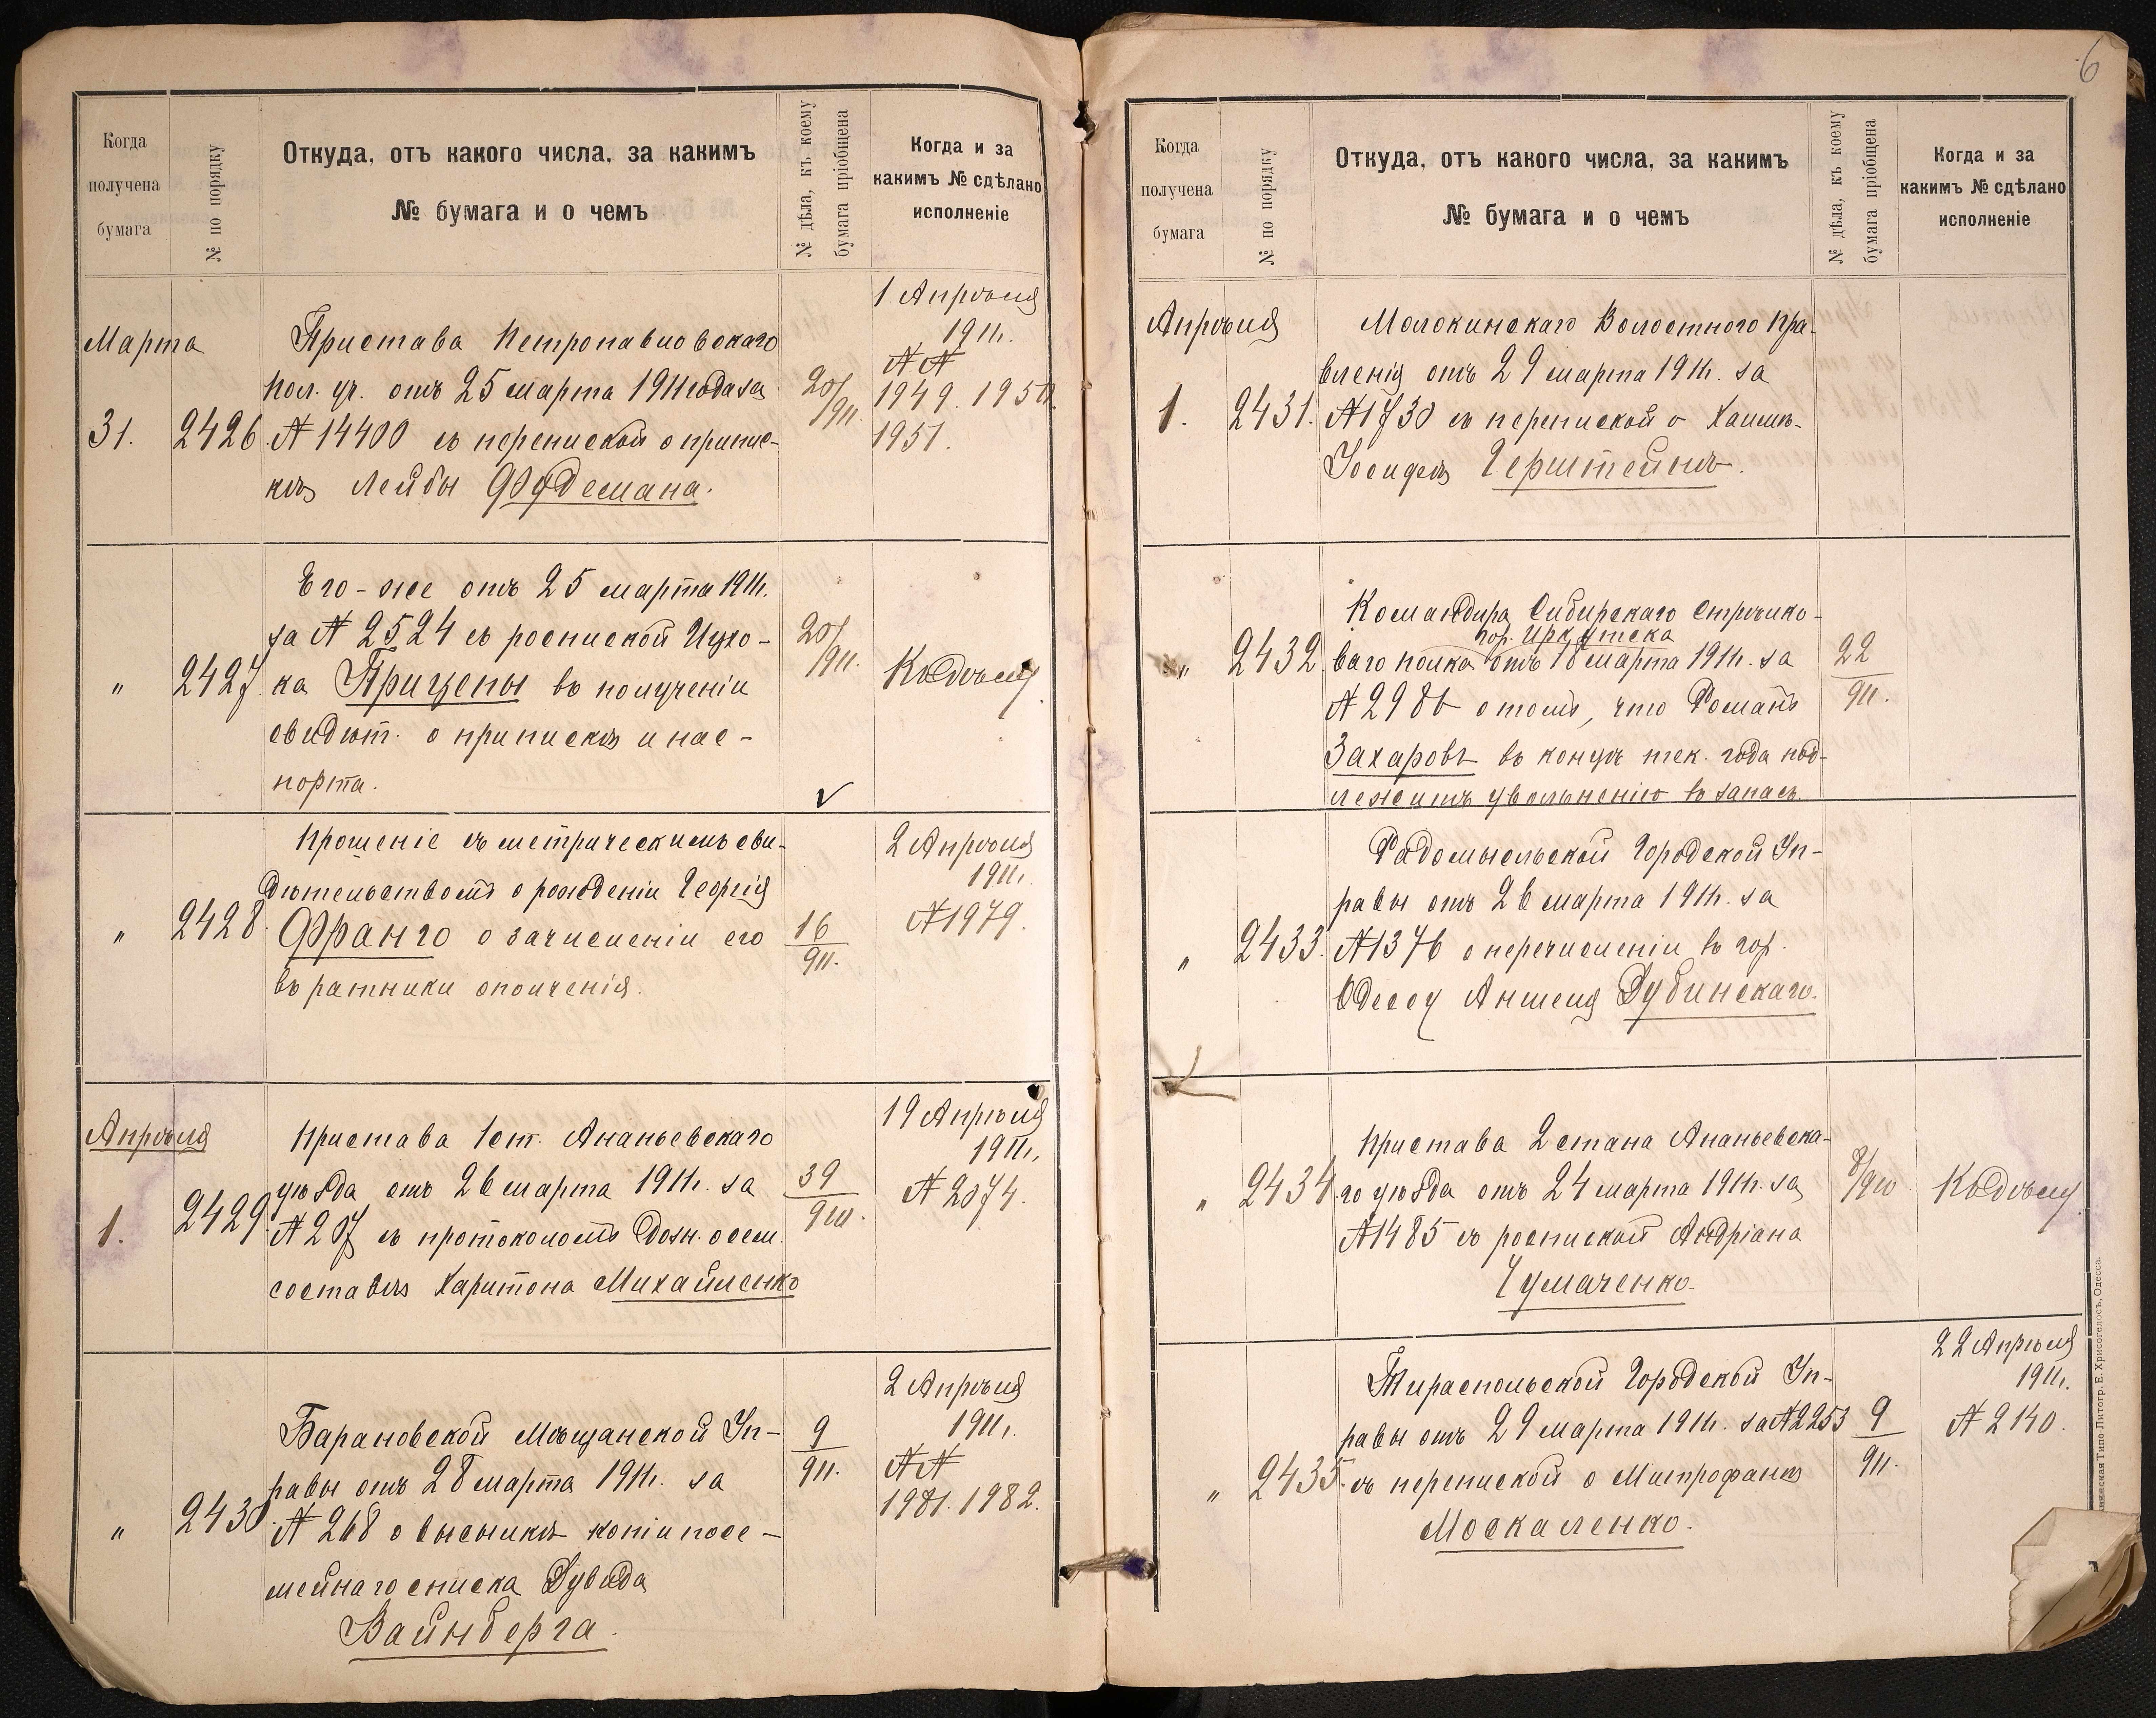 6
Когда
получена
бумага
№ по порядку
Откуда, отъ какого числа, за какимъ
№ бумага и о чемъ
№ дѣла, къ коему
бумага пріобщена
Когда и за
какимъ № сдѣлано
исполненіе
Марта
31.
2426
Пристава Петропавловскаго
пол. уч. отъ 25 марта 1911 года за
№ 14400 съ перепиской о припис-
кѣ Лейбы Фудемана.
20/911.
1 Апрѣля
1911 г.
№№
1949. 1950.
1951.
"
2427
Его-же отъ 25 марта 1911 г.
за № 2524 съ роспиской Ицко-
ка Прицепы въ полученіи
свидѣт. о припискѣ и пас-
порта.
20/911.
Къ дѣлу.
"
2428.
Прошеніе съ метрическимъ сви-
дѣтельствомъ о рожденіи Георгія
Франго о зачисленіи его
въ ратники ополченія.
16
911.
2 Апрѣля
1911 г.
№ 1979.
Апрѣля
1.
2429.
Пристава 1 ст. Ананьевскаго
уѣзда отъ 26 марта 1911 г. за
№ 207 съ протоколомъ дозн. о сем.
составѣ Харитона Михайленко
39
910.
19 Апрѣля
1911 г.
№ 2074.
"
2430
Барановской Мѣщанской Уп-
равы отъ 28 марта 1911 г. за
№ 268 о высылкѣ копіи посе-
мейнаго списка Дувида
Вайнберга.
9
911.
2 Апрѣля
1911 г.
№№
1981. 1982.
Когда
получена
бумага
№ по порядку
Откуда, отъ какого числа, за какимъ
№ бумага и о чемъ
№ дѣла, къ коему
бумага пріобщена
Когда и за
какимъ № сдѣлано
исполненіе
Апрѣля
1.
2431.
Молокишскаго Волостного Пра-
вленія отъ 29 марта 1911 г. за
№ 1730 съ перепиской о Хаимъ-
Іосифѣ Герштейнъ.
"
2432.
Командира Сибирскаго Стрѣлко-
гор. Иркутска
ваго полка отъ 18 марта 1911 г. за
№ 2986 о томъ, что Романъ
Захаровъ въ концѣ тек. года под-
лежитъ увольненію въ запасъ.
22
911.
"
2433.
Радомысльской Городской Уп-
равы отъ 26 марта 1911 г. за
№ 1376 о перечисленіи въ гор.
Одессу Аншеля Дубинскаго.
"
2434
Пристава 2 стана Ананьевска-
го уѣзда отъ 24 марта 1911 г. за
№ 1485 съ роспиской Андріана
Чумаченко.
8/910
Къ дѣлу.
"
2435.
Тираспольской Городской Уп-
равы отъ 29 марта 1911 г. за № 2253
съ перепиской о Митрофанѣ
Москаленко.
9
911.
22 Апрѣля
1911 г.
№ 2140.
Типо-Литогр. Е. Хрисогелосъ, Одесса.